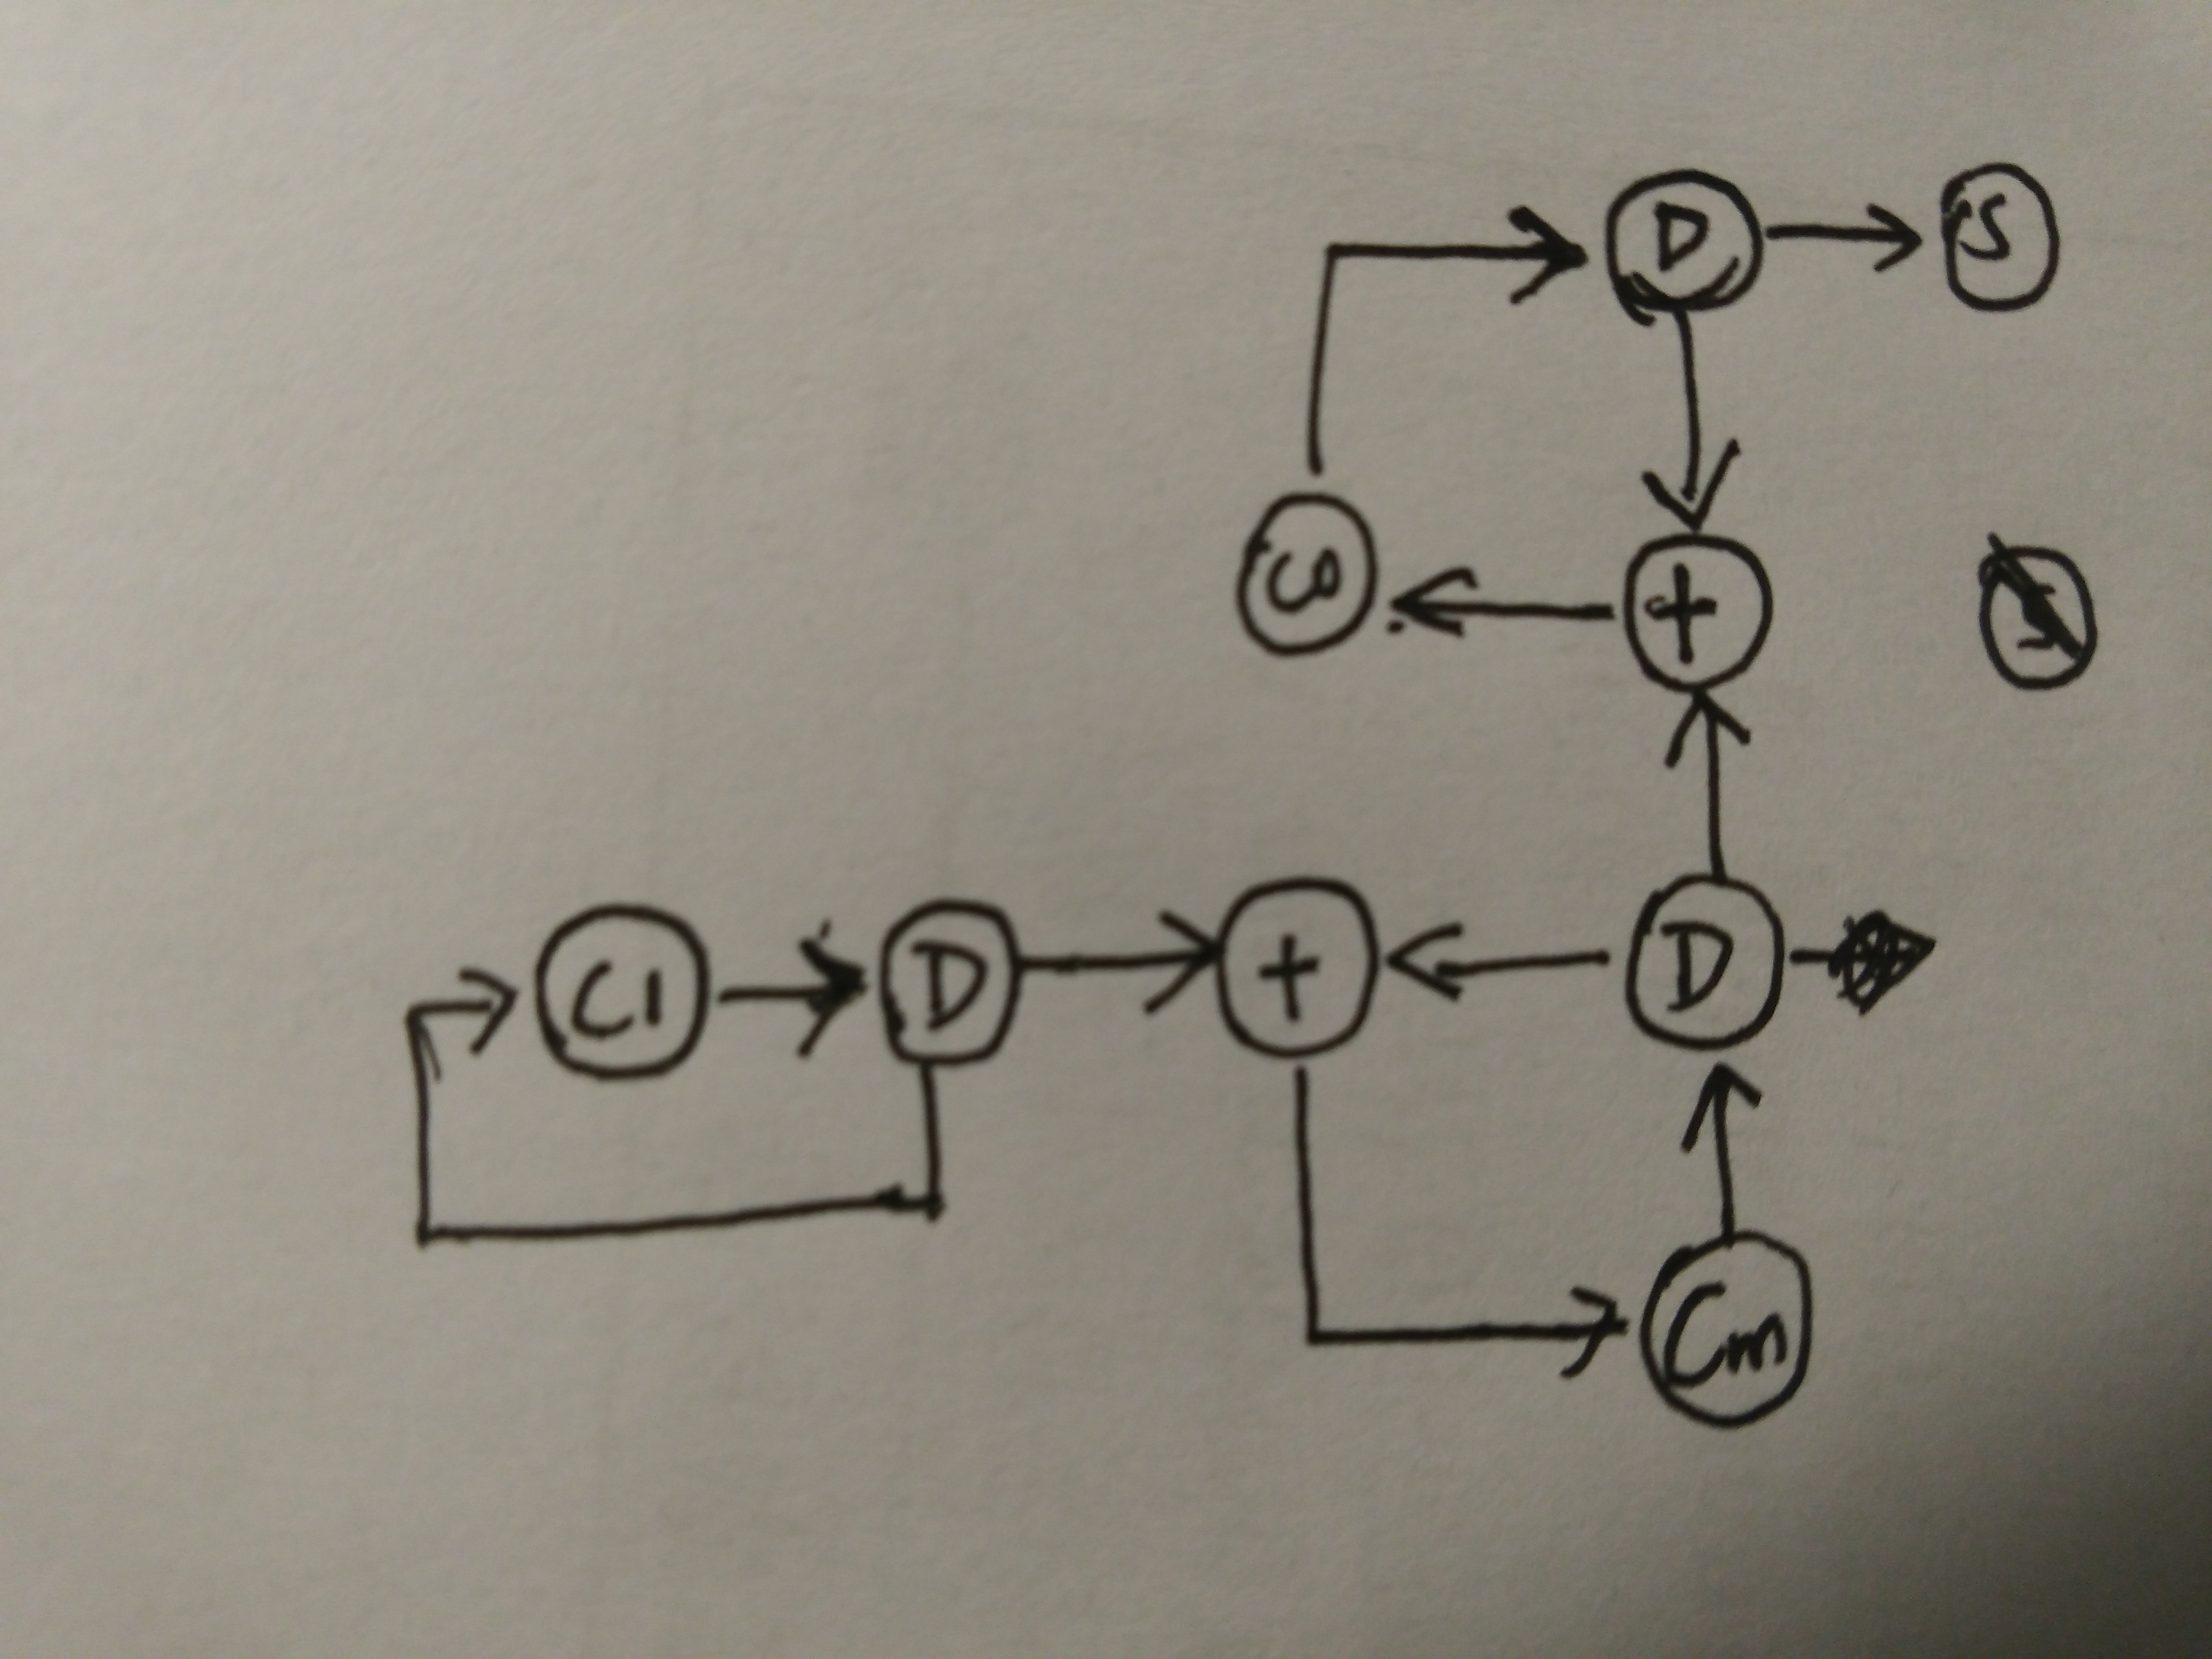 D S
+
C1 D + D
Cm